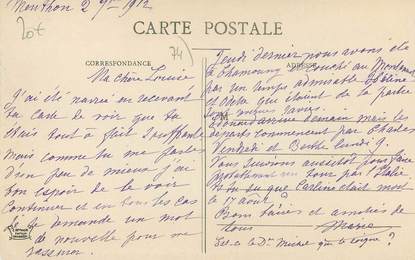 Menthon 2 9bre 1912
20€
CARTE POSTALE
74
CORRESPONDANCE
ADRESSE
Ma chère Louise
J'ai été navrée en recevant
ta carte de voir que tu
étais tout à fait souffrante
Mais comme tu me parles
d'un peu de mieux j'ai
bon espoir de le voir
Continuer et en tous les cas
je te demande un mot
de nouvelle pour me
rassurer.
Jeudi dernier nous avons été
à Chamonix couché au Montanvert
par un temps admirable
et étaient de la partie
ravis.
arrive demain mais les
départs commencent par Charles
Vendredi et Berthe lundi 9.
Nous suivrons aussitôt pour faire
probablement un tour par l'Italie
As tu du que Carline était mort
le 17 août ?
Bons baisers et amitiés de
tous Marie
Est-ce le Dr Michel qui te soigne ?